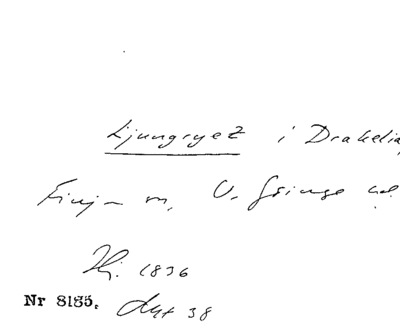 Ljungryet i Drakelia
Finja m, V. Göinge hd.
Hj. 1836
Nr 8185. 38